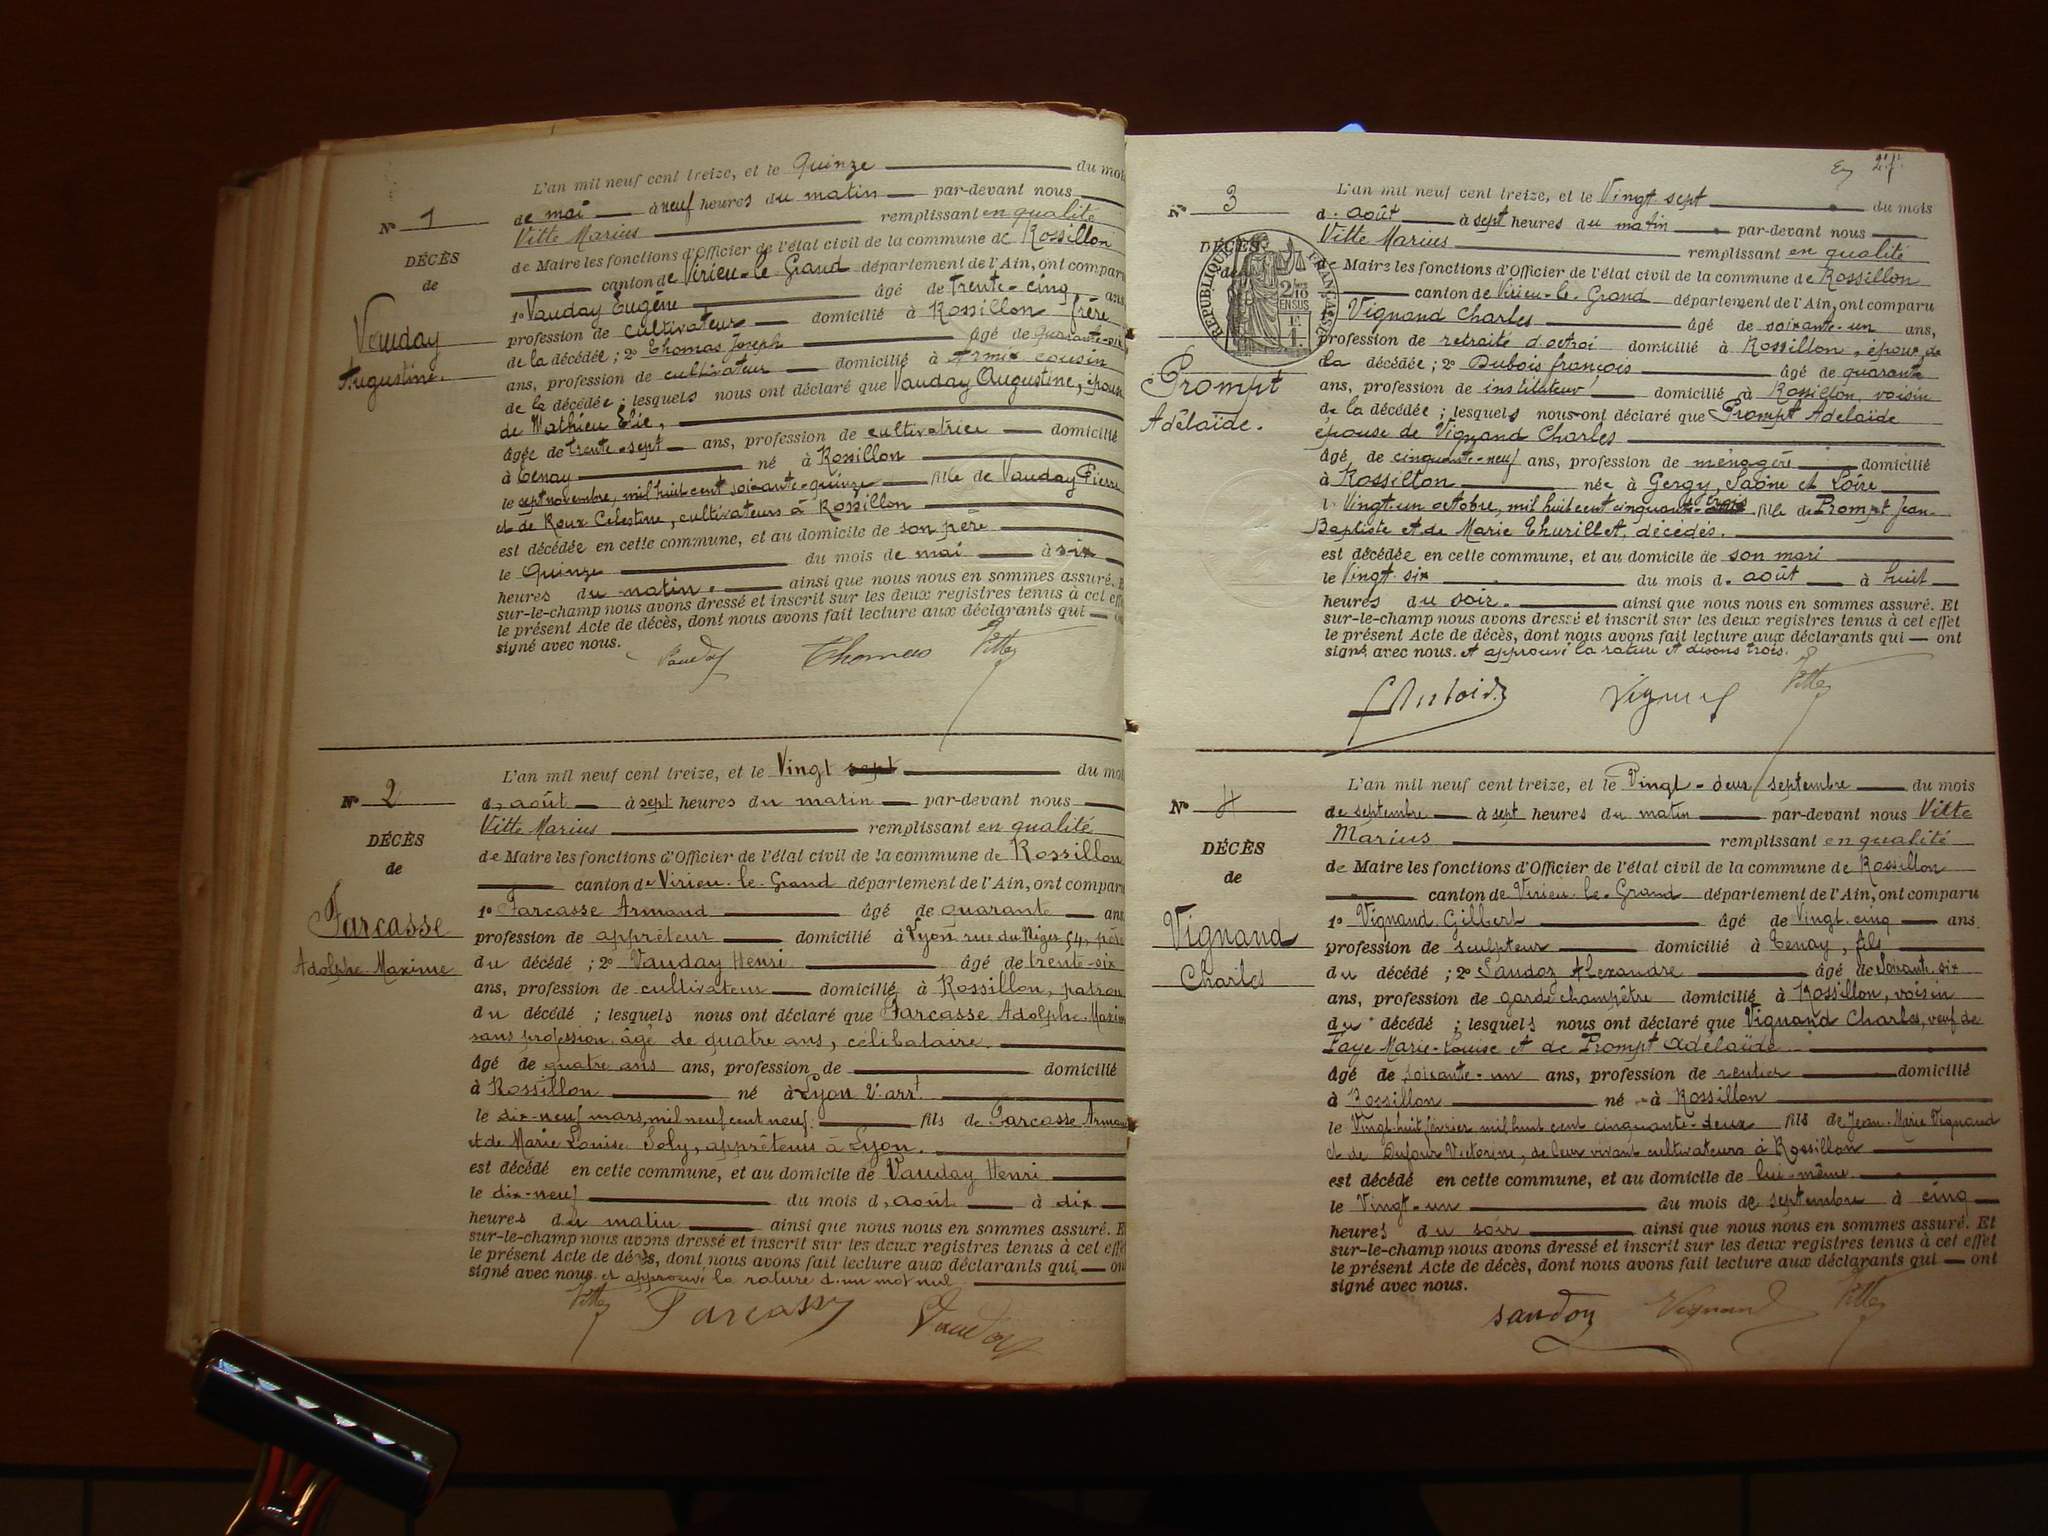 L'an mil neuf cent treize, et le Quinze du mois
Nº 1
de mai à neuf heures du matin par-devant nous
Vitte Marius remplissant en qualité
DÉCÈS
de Maire les fonctions d'Officier de l'état civil de la commune de Rossillon
de
canton de Virieu-le-Grand département de l'Ain, ont comparu
1º Vauday Eugène âgé de trente-cinq ans
Vauday
profession de cultivateur domicilié à Rossillon frère
Augustine.
de la décédée ; 2º Thomas Joseph âgé de quarante-six
ans, profession de cultivateur domicilié à Armix cousin
de la décédée ; lesquels nous ont déclaré que Vauday Augustine, épouse
de Mathieu Élie,
âgée de trente-sept ans, profession de cultivatrice domicilié
à Tenay né à Rossillon
le sept novembre, mil huit cent soixante-quinze fille de Vauday Pierre
et de Roux Célestine, cultivateurs à Rossillon
est décédée en cette commune, et au domicile de son père
le Quinze du mois de mai à six
heures du matin. ainsi que nous nous en sommes assuré. Et
sur-le-champ nous avons dressé et inscrit sur les deux registres tenus à cet effet
le présent Acte de décès, dont nous avons fait lecture aux déclarants qui ont
signé avec nous.
Vauday Thomas Vitte
L'an mil neuf cent treize, et le Vingt sept du mois
Nº 2
d'août à sept heures du matin par-devant nous
Vitte Marius remplissant en qualité
DÉCÈS
de Maire les fonctions d'Officier de l'état civil de la commune de Rossillon
de
canton de Virieu-le-Grand département de l'Ain, ont comparu
Farcasse
1º Farcasse Armand âgé de quarante ans
profession de apprêteur domicilié à Lyon rue du Niger 54, père
Adolphe Maxime
du décédé ; 2º Vauday Henri âgé de trente-six
ans, profession de cultivateur domicilié à Rossillon, patron
du décédé ; lesquels nous ont déclaré que Farcasse Adolphe-Maxime
sans profession, âgé de quatre ans, célibataire.
âgé de quatre ans ans, profession de domicilié
à Rossillon né à Lyon arrt
le dix-neuf mars, mil neuf cent neuf. fils de Farcasse Armand
et de Marie Louise Soly, apprêteurs à Lyon.
est décédé en cette commune, et au domicile de Vauday Henri
le dix-neuf du mois d'août à dix
heures du matin ainsi que nous nous en sommes assuré. Et
sur-le-champ nous avons dressé et inscrit sur les deux registres tenus à cet effet
le présent Acte de décès, dont nous avons fait lecture aux déclarants qui ont
signé avec nous et approuvé la rature d'un mot nul
Vitte Farcasse Vauday
L'an mil neuf cent treize, et le Vingt sept du mois
Nº 3
d'août à sept heures du matin par-devant nous
Vitte Marius remplissant en qualité
DÉCÈS
de
RÉPUBLIQUE FRANÇAISE
2/10 EN SUS
de Maire les fonctions d'Officier de l'état civil de la commune de Rossillon
canton de Virieu-le-Grand département de l'Ain, ont comparu
Vignand Charles âgé de soixante-un ans,
profession de retraité d'octroi domicilié à Rossillon, époux de
Prompt
la décédée ; 2º Dubois françois âgé de quarante
ans, profession de instituteur domicilié à Rossillon, voisin
Adélaïde.
de la décédée ; lesquels nous ont déclaré que Prompt Adelaïde
épouse de Vignand Charles
âgé de cinquante-neuf ans, profession de ménagère domicilié
à Rossillon née à Gergy, Saône et Loire
le Vingt-un octobre, mil huit cent cinquante-trois fille de Prompt Jean-
Baptiste et de Marie Thurillet, décédés.
est décédée en cette commune, et au domicile de son mari
le Vingt six du mois d'août à huit
heures du soir. ainsi que nous nous en sommes assuré. Et
sur-le-champ nous avons dressé et inscrit sur les deux registres tenus à cet effet
le présent Acte de décès, dont nous avons fait lecture aux déclarants qui ont
signé avec nous. et approuvé la rature et disons trois.
Vignand Vitte
L'an mil neuf cent treize, et le Vingt-deux septembre du mois
Nº 4
de septembre à sept heures du matin par-devant nous Vitte
Marius remplissant en qualité
DÉCÈS
de Maire les fonctions d'Officier de l'état civil de la commune de Rossillon
de
canton de Virieu-le-Grand département de l'Ain, ont comparu
1º Vignand Gilbert âgé de Vingt-cinq ans.
Vignand
profession de sculpteur domicilié à Tenay, fils
Charles
du décédé ; 2º Sandoz Alexandre âgé de Soixante six
ans, profession de garde champêtre domicilié à Rossillon, voisin
du décédé ; lesquels nous ont déclaré que Vignand Charles, veuf de
Faye Marie-Louise et de Prompt Adélaïde
âgé de soixante-un ans, profession de rentier domicilié
à Rossillon né à Rossillon
le Vingt-huit février mil huit cent cinquante-deux fils de Jean-Marie Vignand
et de Dufour Victorine, de leur vivant cultivateurs à Rossillon
est décédé en cette commune, et au domicile de lui-même.
le Vingt-un du mois de septembre à cinq
heures du soir ainsi que nous nous en sommes assuré. Et
sur-le-champ nous avons dressé et inscrit sur les deux registres tenus à cet effet
le présent Acte de décès, dont nous avons fait lecture aux déclarants qui ont
signé avec nous.
sandoz Vignand Vitte